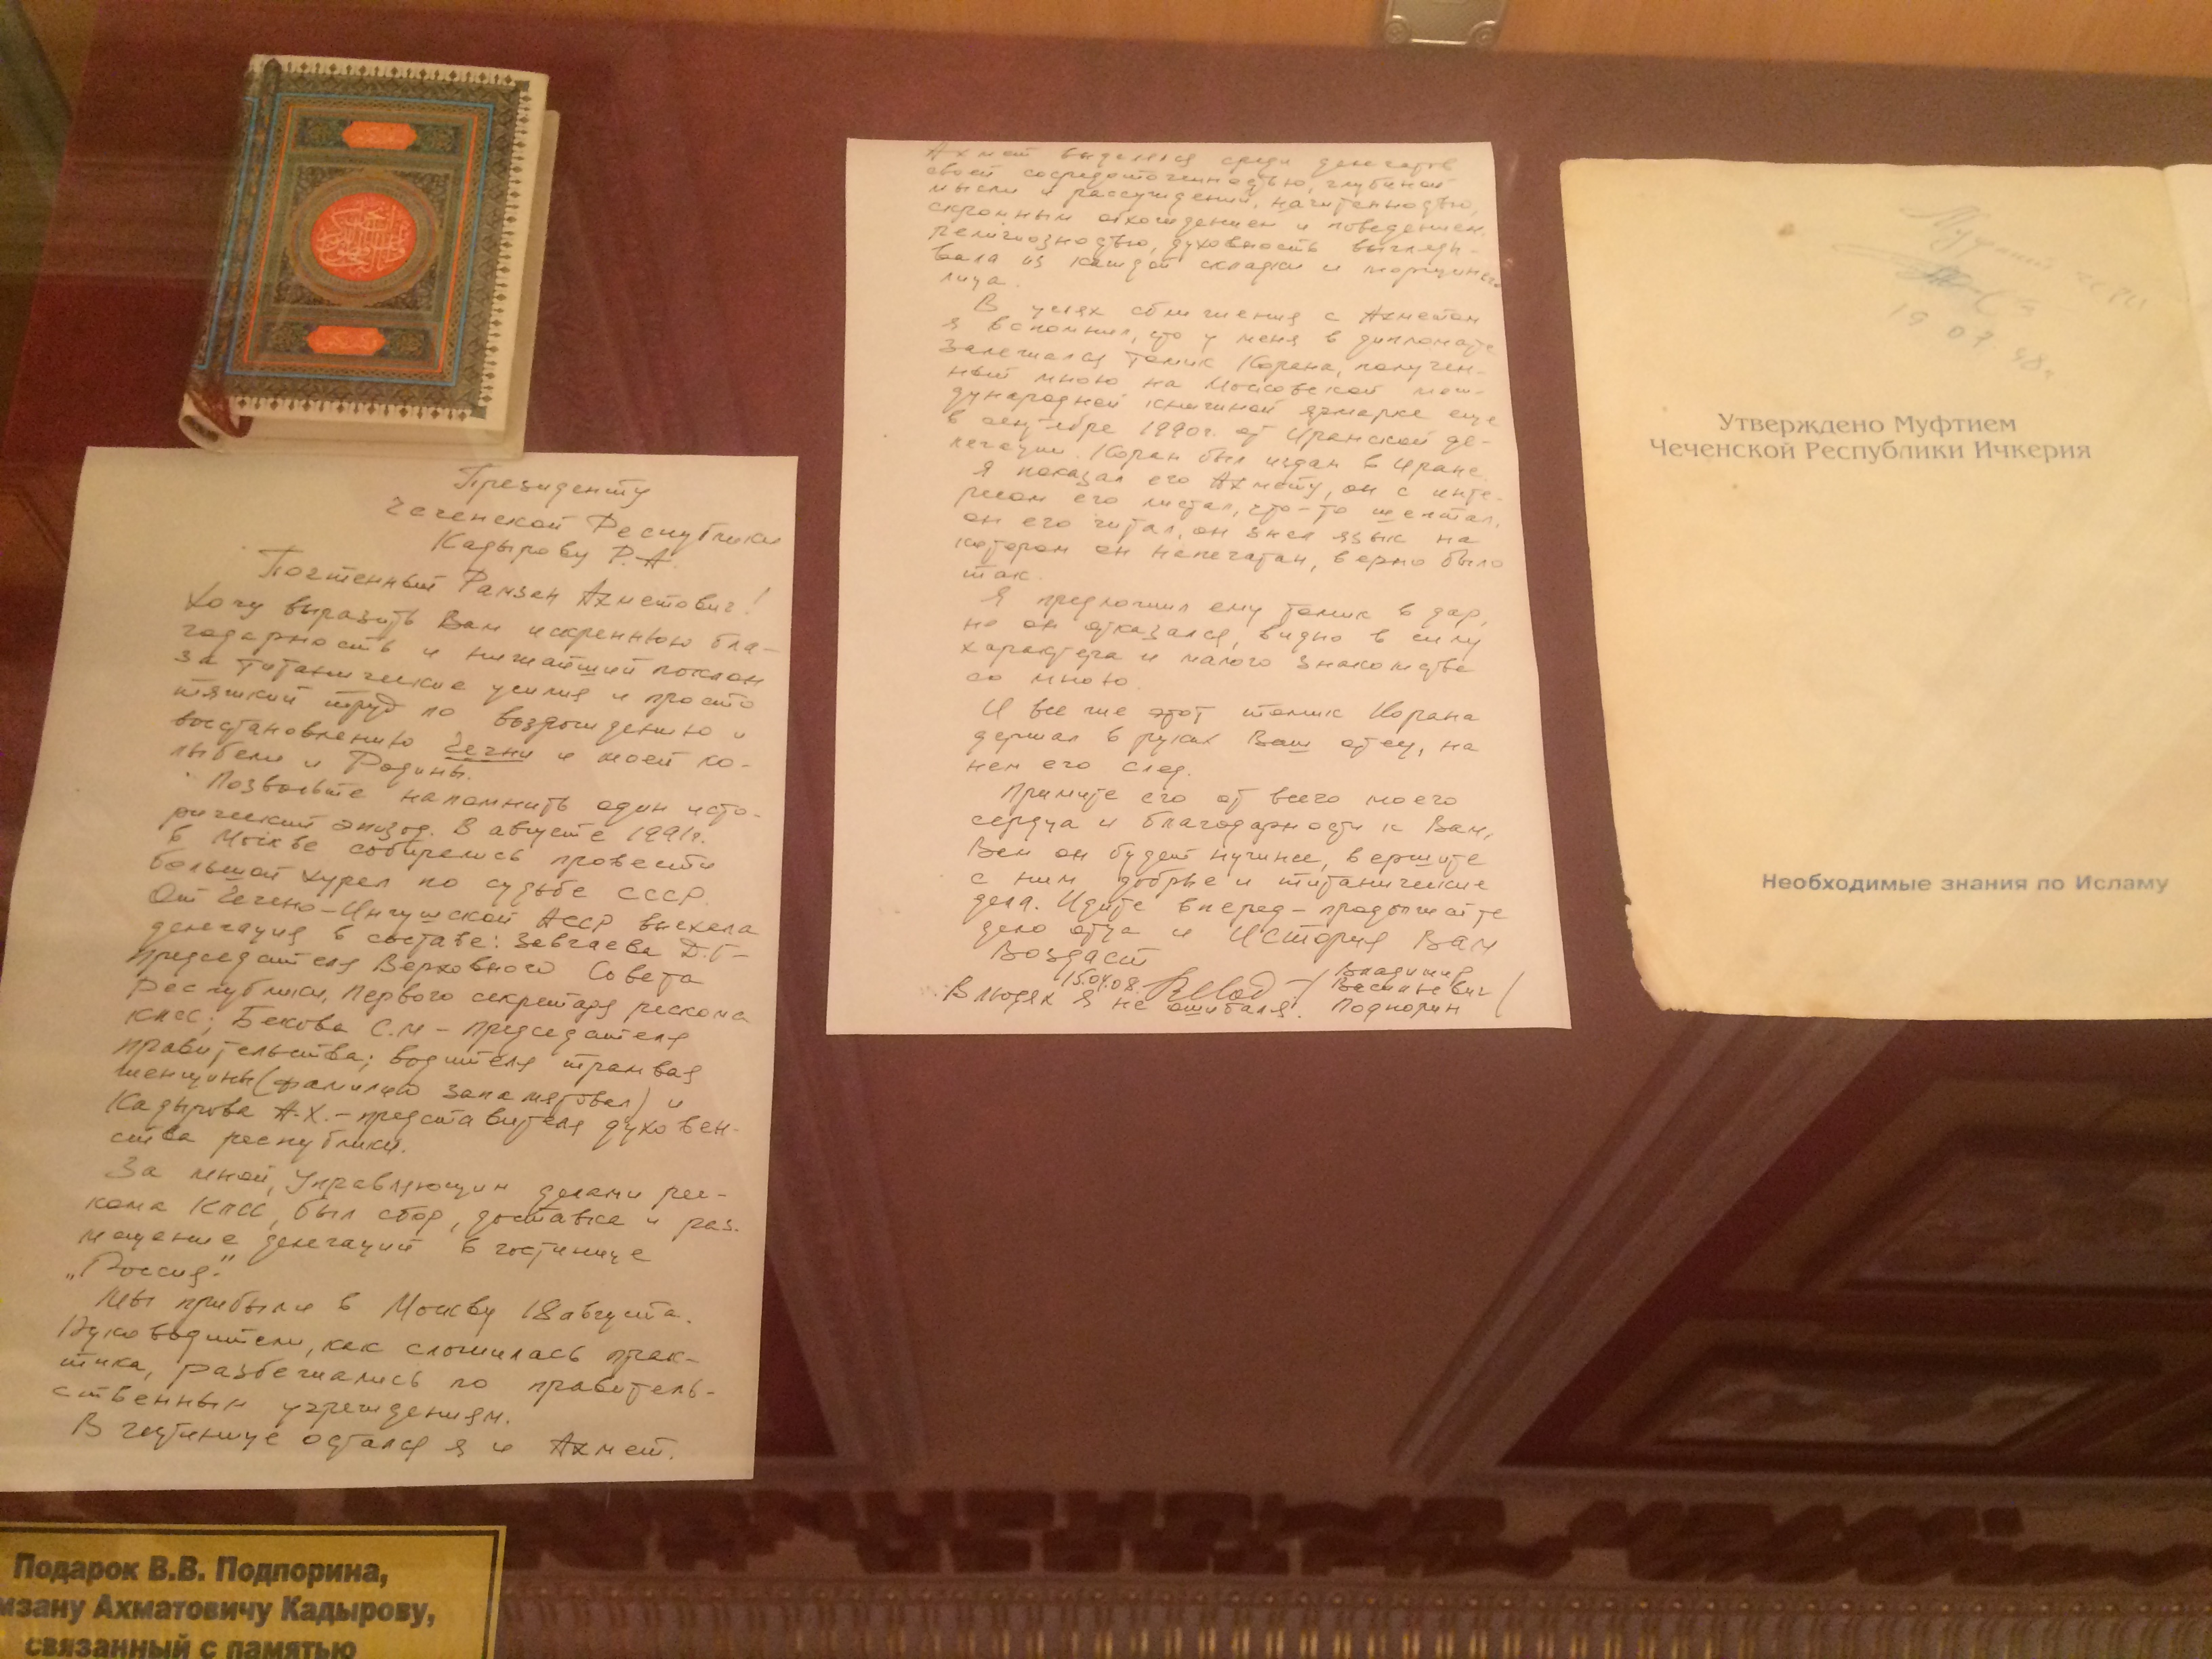 Президенту
Чеченской Республики
Кадырову Р.А.
Почтенный Рамзан Ахметович!
Хочу выразить Вам искреннюю бла-
годарность и нижайший поклон
за титанические усилия и просто
тяжкий труд по возрождению и
восстановлению Чечни и моей ко-
лыбели и Родины.
Позвольте напомнить один исто-
рический эпизод. В августе 1991г.
в Москве собирались провести
большой хурал по судьбе СССР.
От Чечено-Ингушской АССР выехала
делегация в составе: Завгаева Д.Г-
председателя Верховного Совета
Республики, первого секретаря рескома
КПСС; Бекова С.М - председателя
правительства; водителя трамвая
женщины (фамилию запамятовал) и
Кадырова А.Х. - представителя духовен-
ства республики.
За мной, Управляющим делами рес-
кома КПСС, был сбор, доставка и раз-
мещение делегаций в гостинице
„Россия".
Мы прибыли в Москву 18 августа.
Руководители, как сложилась прак-
тика, разбежались по правитель-
ственным учреждениям.
В гостинице остался я и Ахмет.
Ахмет выделялся среди делегатов
своей сосредоточенностью, глубиной
мысли и рассуждений, начитенностью,
скромным обхождением и поведением.
Религиозностью, духовность выгляды-
вала из каждой складки и морщины его
лица.
В целях сближения с Ахметом
я вспомнил, что у меня в дипломате
залежался томик Корана, получен-
ный мною на Московской меж-
дународной книжной ярмарке еще
в сентябре 1990г. от Иранской де-
легации. Коран был издан в Иране.
Я показал его Ахмету, он с инте-
ресом его листал, что-то шептал,
он его читал, он знал язык на
котором он напечатан, верно было
так.
Я предложил ему томик в дар,
но он отказался, видно в силу
характера и малого знакомства
со мною.
И все же этот томик Корана
держал в руках Ваш отец, на
нем его след.
Примите его от всего моего
сердца и благодарности к Вам,
Вам он будет нужнее, вершите
с ним добрые и титанические
дела. Идите вперед - продолжайте
дело отца и История Вам
Воздаст
15.04.08. /Владимир
Васильевич
Подпорин/
В людях я не ошибался.
Муфтий
19 07 98г.
Утверждено Муфтием
Чеченской Республики Ичкерия
Необходимые знания по Исламу
Подарок В.В. Подпорина,
мзану Ахматовичу Кадырову,
связанный с памятью